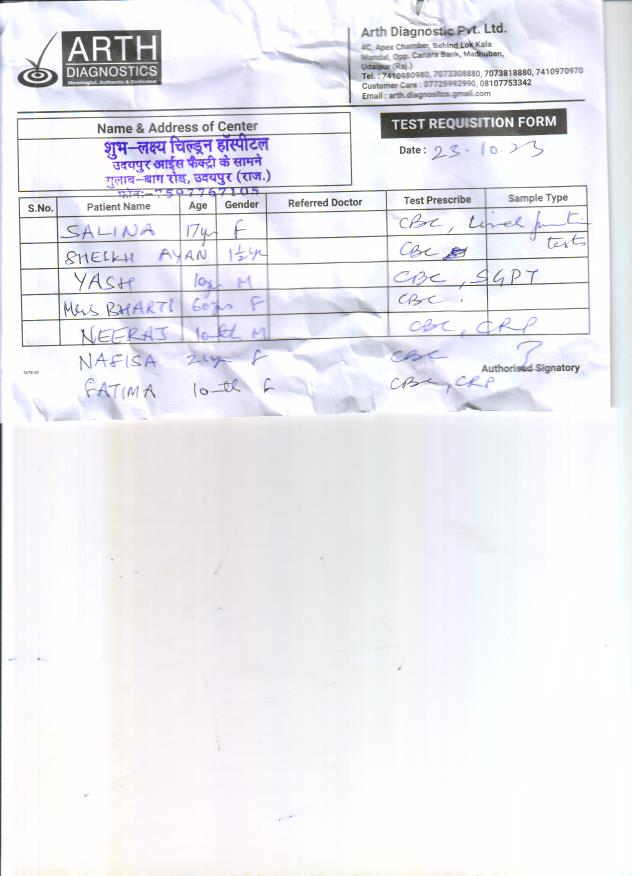 ARTH
DIAGNOSTICS
Meaningful, Authentic & Dedicated
Arth Diagnostic Pvt. Ltd.
4C, Apex Chamber, Behind Lok Kala
Mandal, Opp. Canara Bank, Madhuban,
Udaipur (Raj.)
Tel. : 7410980980, 7073308880, 7073818880, 7410970970
Customer Care : 07725992990, 08107753342
Email : arth.diagnositcs.gmail.com
Name & Address of Center
शुभ-लक्ष्य चिल्ड्रन हॉस्पीटल
उदयपुर आईस फैक्ट्री के सामने
गुलाब-बाग रोड, उदयपुर (राज.)
फोन:-7597767105
TEST REQUISITION FORM
Date : 23.10.23
S.No. Patient Name Age Gender Referred Doctor Test Prescribe Sample Type
SALINA 17yr F CBC, Liver funct. tests
SHEIKH AYAN 1½yr CBC
YASH M CBC, SGPT
Mrs BHARTI 60yrs F CBC.
NEERAJ 10mth M CBC, CRP
NAFISA F CBC
Authorised Signatory
FATIMA 10mth F CBC, CRP